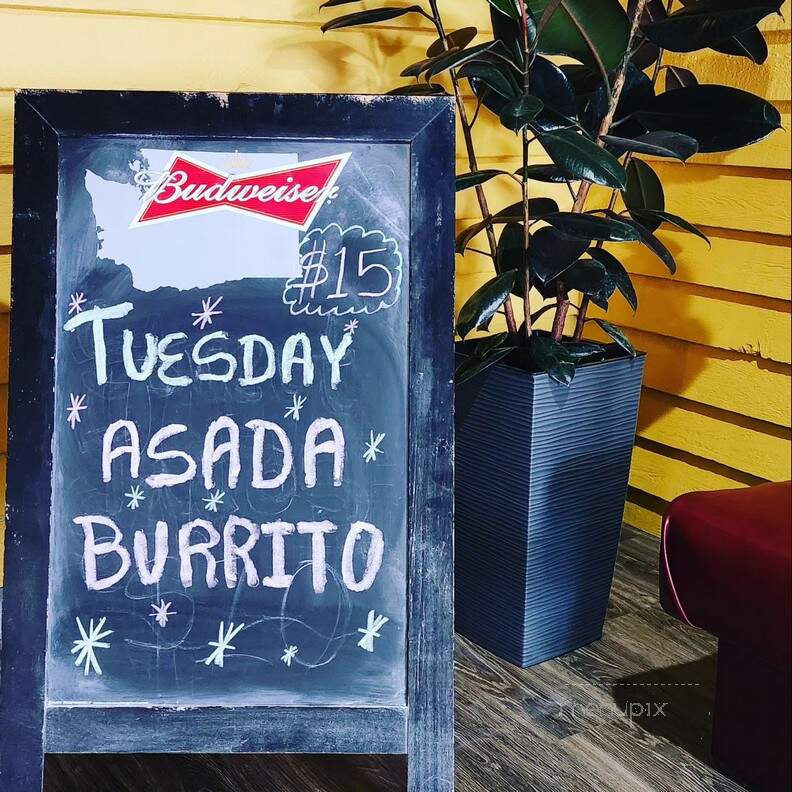 Budweiser
$15
TUESDAY
ASADA
BURRITO
menupix